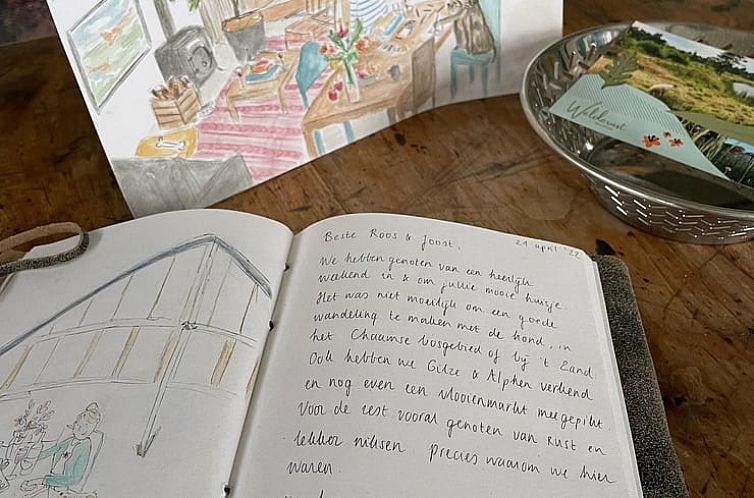 Welderust
Beste Roos & Joost,
21 april '22
We hebben genoten van een heerlijk
weekend in & om jullie mooie huisje.
Het was niet moeilijk om een goede
wandeling te maken met de hond, in
het Chaamse bosgebied of bij 't Zand.
Ook hebben we Gilze & Alphen verkend
en nog even een vlooienmarkt meegepikt.
Voor de rest vooral genoten van rust en
lekker niksen. Precies waarom we hier
waren.